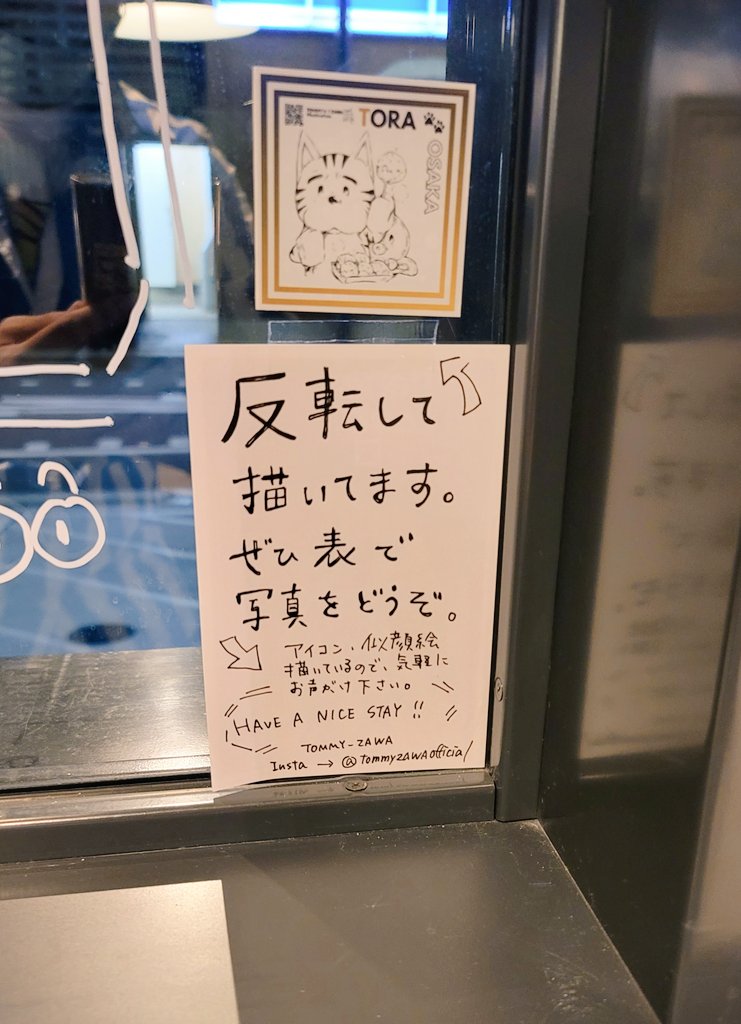 TORA
OSAKA
反転して
描いてます。
ぜひ表で
写真をどうぞ。
アイコン、似顔絵
描いているので、気軽に
お声がけ下さい。
HAVE A NICE STAY!!
TOMMY-ZAWA
Insta → @tommyzawaofficial